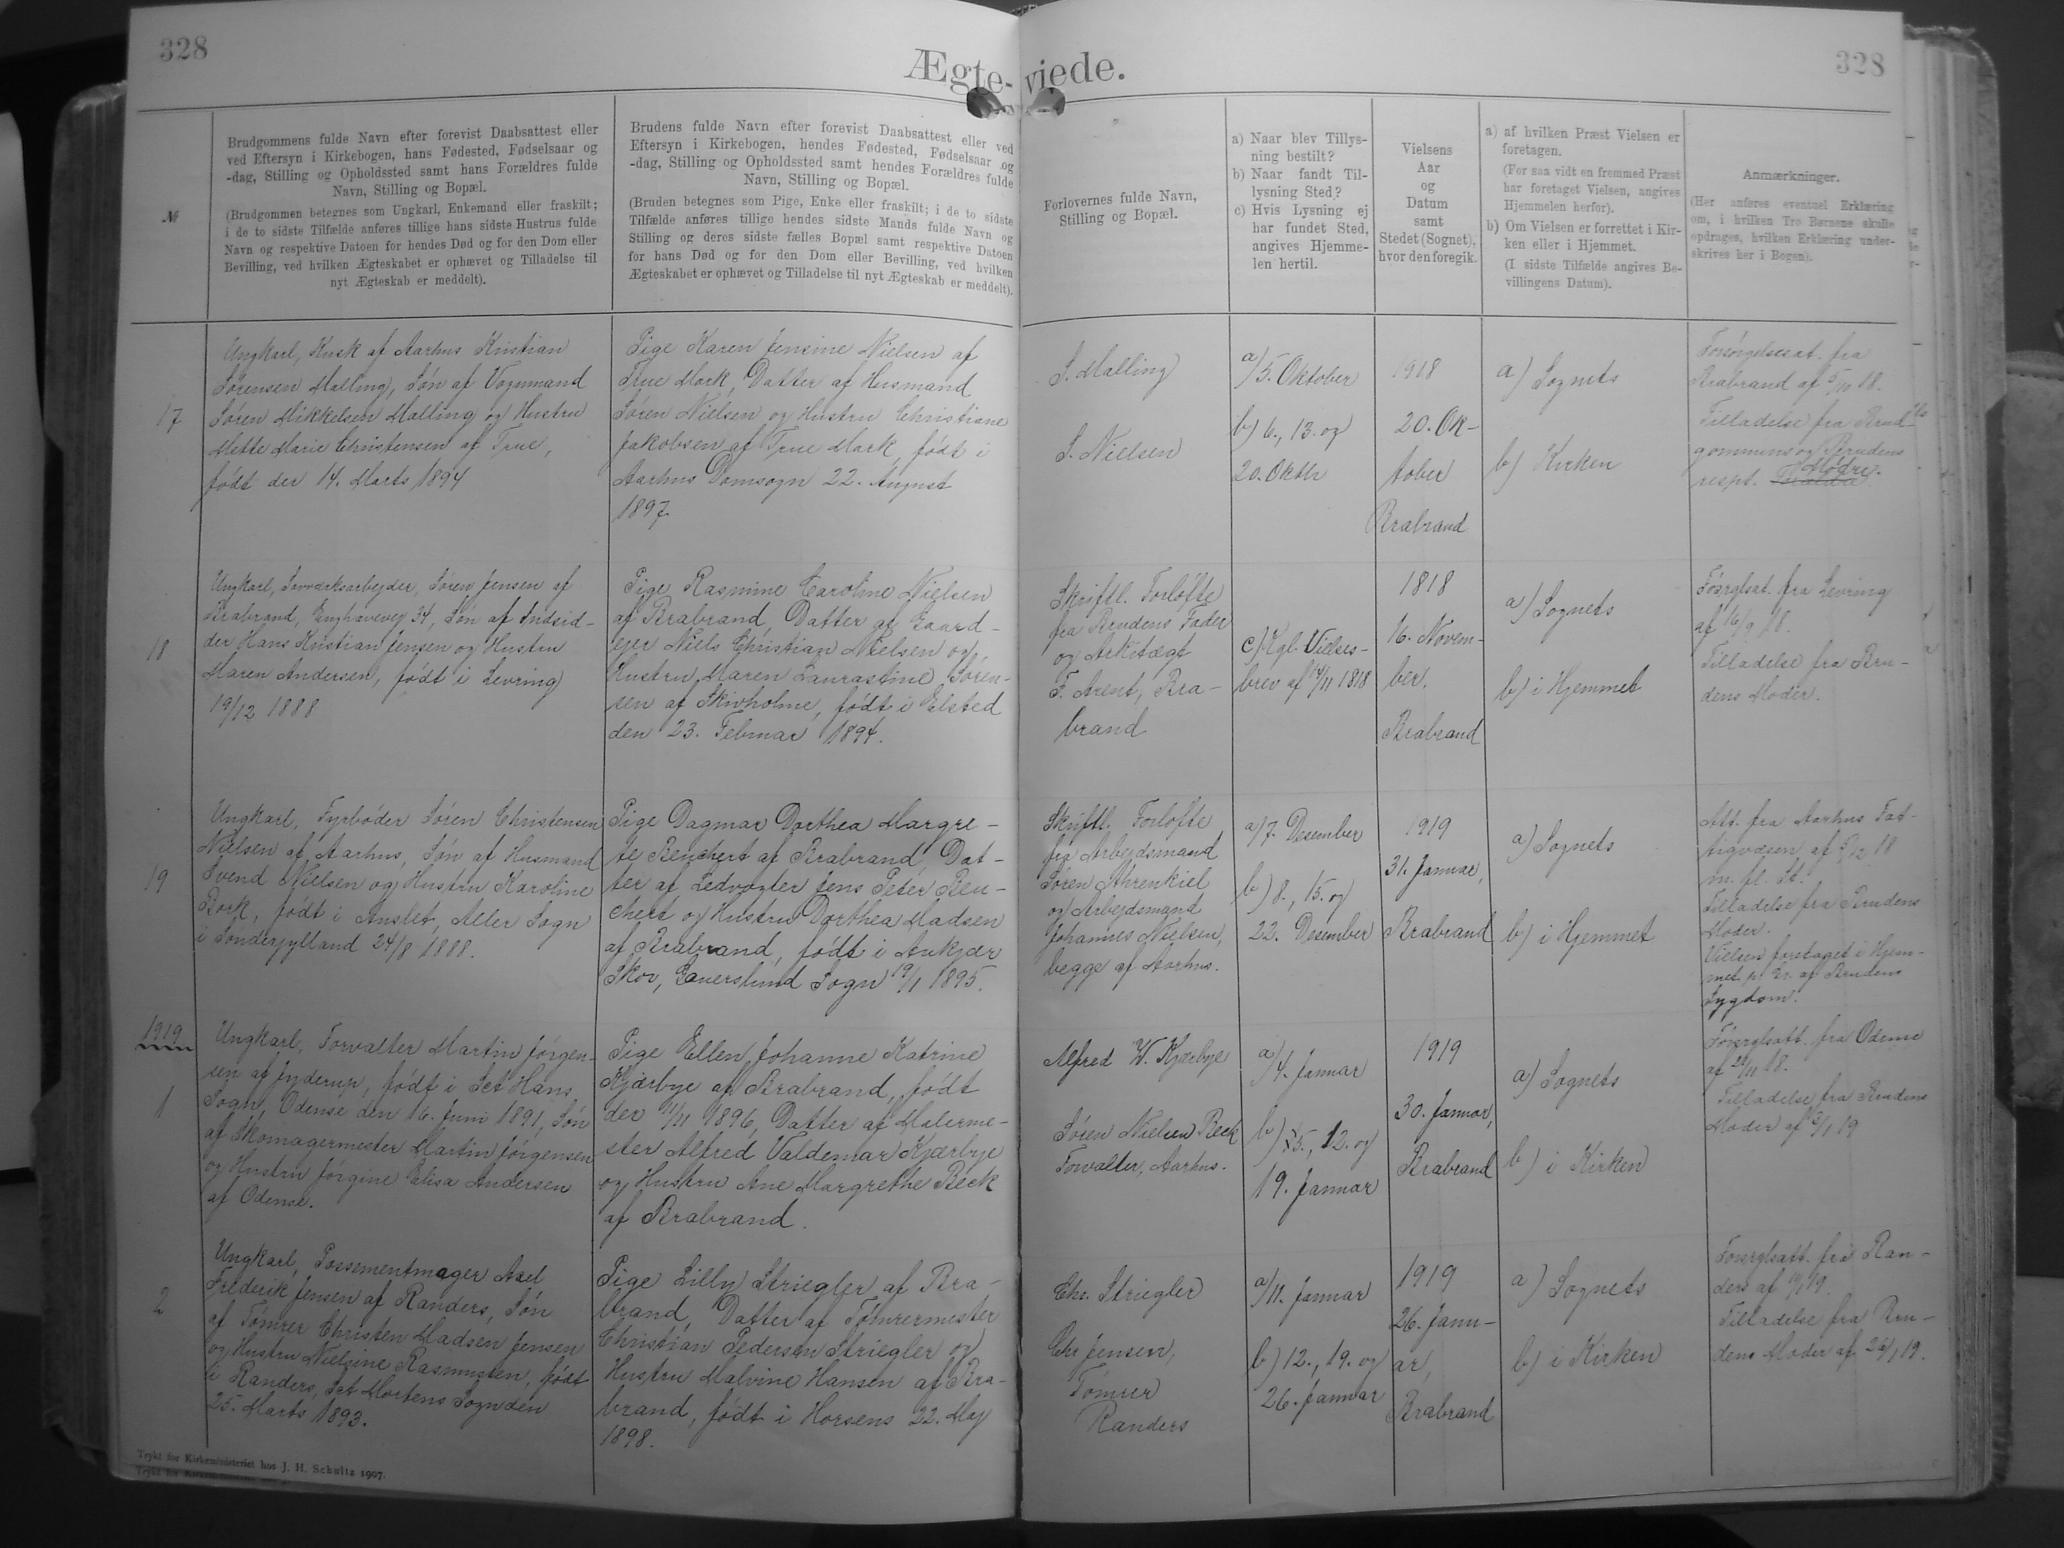 328
Ægte-viede.
328
№
Brudgommens fulde Navn efter forevist Daabsattest eller
ved Eftersyn i Kirkebogen, hans Fødested, Fødselsaar og
-dag, Stilling og Opholdssted samt hans Forældres fulde
Navn, Stilling og Bopæl.
(Brudgommen betegnes som Ungkarl, Enkemand eller fraskilt;
i de to sidste Tilfælde anføres tillige hans sidste Hustrus fulde
Navn og respektive Datoen for hendes Død og for den Dom eller
Bevilling, ved hvilken Ægteskabet er ophævet og Tilladelse til
nyt Ægteskab er meddelt).
Brudens fulde Navn efter forevist Daabsattest eller ved
Eftersyn i Kirkebogen, hendes Fødested, Fødselsaar og
-dag, Stilling og Opholdssted samt hendes Forældres fulde
Navn, Stilling og Bopæl.
(Bruden betegnes som Pige, Enke eller fraskilt; i de to sidste
Tilfælde anføres tillige hendes sidste Mands fulde Navn og
Stilling og deres sidste fælles Bopæl samt respektive Datoen
for hans Død og for den Dom eller Bevilling, ved hvilken
Ægteskabet er ophævet og Tilladelse til nyt Ægteskab er meddelt).
Forlovernes fulde Navn,
Stilling og Bopæl.
a) Naar blev Tillys-
ning bestilt?
b) Naar fandt Til-
lysning Sted?
c) Hvis Lysning ej
har fundet Sted,
angives Hjemme-
len hertil.
Vielsens
Aar
og
Datum
samt
Stedet (Sognet),
hvor den foregik.
a) af hvilken Præst Vielsen er
foretagen.
(For saa vidt en fremmed Præst
har foretaget Vielsen, angives
Hjemmelen herfor).
b) Om Vielsen er forrettet i Kir-
ken eller i Hjemmet.
(I sidste Tilfælde angives Be-
villingens Datum).
Anmærkninger.
(Her anføres eventuel Erklæring
om, i hvilken Tro Børnene skulle
opdrages, hvilken Erklæring under-
skrives her i Bogen).
17
Ungkarl, Kusk af Aarhus Kristian
Sørensen Malling, Søn af Vognmand
Søren Mikkelsen Malling og Hustru
Mette Marie Christensen af True,
født den 14. Marts 1894
Pige Karen Jensine Nielsen af
True Mark, Datter af Husmand
Søren Nielsen og Hustru Christiane
Jakobsen af True Mark, født i
Aarhus Domsogn 22. August
1897
S. Malling
S. Nielsen
a) 5. Oktober
b) 6., 13. og
20. Oktbr
1918
20. Ok-
tober
Brabrand
a) Sognets
b) Kirken
Forsørgelsesat. fra
Brabrand af 5/10 18.
Tilladelse fra Brud-
gommens og Brudens
Mødre.
respt.
18
Ungkarl, Savværksarbejder, Søren Jensen af
Brabrand, Enghavevej 34, Søn af Indsid-
der Hans Kristian Jensen og Hustru
Maren Andersen, født i Levring
19/12 1888
Pige Rasmine Caroline Nielsen
af Brabrand, Datter af Gaard-
ejer Niels Christian Nielsen og
Hustru Maren Laurastine Søren-
sen af Skivholme, født i Elsted
den 23. Februar 1894.
Skriftl. Forløfte
fra Brudens Fader
og Arkitægt
F. Arent, Bra-
brand
c) Kgl. Vielses-
brev af 14/11 1818
1818
16. Novem-
ber.
Brabrand
a) Sognets
b) i Hjemmet
Fósrglsat. fra Levring
af 16/9 18.
Tilladelse fra Bru-
dens Moder.
19
Ungkarl, Fyrbøder Søren Christensen
Nielsen af Aarhus, Søn af Husmand
Svend Nielsen og Hustru Karoline
Bork, født i Anslet, Aller Sogn
i Sønderjylland 24/8 1888.
Pige Dagmar Dorthea Margre-
te Benchert af Brabrand, Dat-
ter af Ledvogter Jens Peter Ben-
chert og Hustru Dorthea Madsen
af Brabrand, født i Ankjær
Skov, Gauerslund Sogn 19/1 1895.
Skriftl. Forløfte
fra Arbejdsmand
Søren Ahrenkiel
og Arbejdsmand
Johannes Nielsen,
begge af Aarhus.
a) 7. Desember
b) 8., 15. og
22. Desember
1919
31. Januar,
Brabrand
a) Sognets
b) i Hjemmet
Att. fra Aarhus Fat-
tigvæsen af 5/12 18
m. fl. St.
Tilladelse fra Brudens
Moder.
Vielsen foretaget i Hjem-
met p. Gr. af Brudens
Sygdom.
1919
1
Ungkarl, Forvalter Martin Jørgen-
sen af Jyderup, født i Sct Hans
Sogn, Odense den 16. Juni 1891, Søn
af Skomagermester Martin Jørgensen
og Hustru Jørgine Elisa Andersen
af Odense.
Pige Ellen Johanne Katrine
Kjærbye af Brabrand, født
den 11/11 1896, Datter af Malerme-
ster Alfred Valdemar Kjærbye
og Hustru Ane Margrethe Beck
af Brabrand.
Alfred W. Kjærbye
Søren Nielsen Beck
Forvalter, Aarhus.
a) 4. Januar
b) 5., 12. og
19. Januar
1919
30. Januar,
Brabrand
a) Sognets
b) i Kirken
Fósrglsatt. fra Odense
af 21/11 18.
Tilladelse fra Brudens
Moder af
2
Ungkarl, Possementmager Axel
Frederik Jensen af Randers, Søn
af Tømrer Christen Madsen Jensen
og Hustru Nielsine Rasmussen, født
i Randers, Sct Mortens Sogn den
25. Marts 1893.
Pige Lilly Striegler af Bra-
brand, Datter af Tømrermester
Christian Pedersen Striegler og
Hustru Malvine Hansen af Bra-
brand, født i Horsens 22. Maj
1898.
Chr. Striegler
Chr Jensen,
Tømrer
Randers
a) 11. Januar
b) 12., 19. og
26. Januar
1919
26. Janu-
ar,
Brabrand
a) Sognets
b) i Kirken
Fósrglsatt. fra Ran-
ders af
Tilladelse fra Bru-
dens Moder af 26/1 19.
Trykt for Kirkeministeriet hos J. H. Schultz 1907.